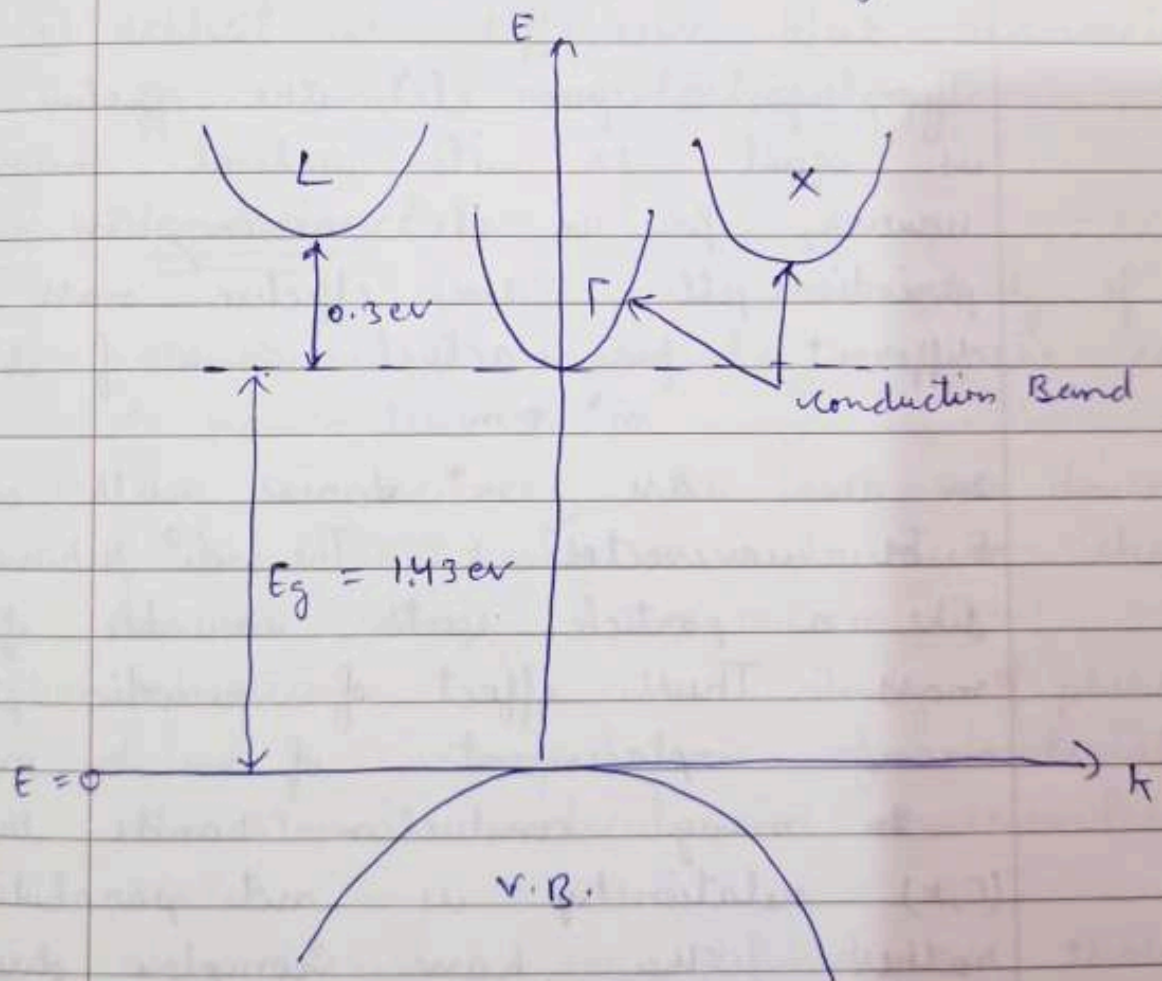 E
L
X
Γ
0.3ev
Conduction Band
Eg = 1.43ev
E = 0
k
V.B.